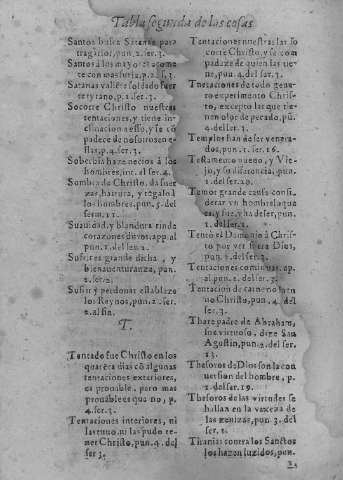 Tabla segunda de las cosas
Santos busca Satanas para
tragarlos, pun. 2. ser. 3.
Santos los mayores acome
te con mas furia, p. 2. s. 3.
Satanas valiente soldado fuer
te tyrano, p. 2. ser. 3.
Socorre Christo nuestras
tentaciones, y tiene in-
clinacion a esso, y se co
padece de nosotros en e-
llas, p. 4. ser. 3.
Soberbia haze necios á los
hombres, int. al ser. 4.
Sombra de Christo, da fuer
zas, hartura, y regalo à
los hombres, pun. 5. del
serm. 11.
Suauidad, y blandura rinde
coraçones duros, app. al
pun. 1. del ser. 2.
Sufrir es grande dicha, y
bienauenturanza, pun.
2. ser. 2.
Sufrir y perdonar establece
los Reynos, pun. 2. ser.
2. al fin.
T.
Tentado fue Christo en los
quarẽta dias cõ algunas
tentaciones exteriores,
es prouable, pero mas
prouable es que no, p.
4. ser. 3.
Tentaciones interiores, ni
las tuuo, ni las pudo te-
ner Christo, pun. 4. del
ser 3.
Tentaciones nuestras las so
corre Christo, y se com
padeze de quien las tie-
ne, pun. 4. del ser. 3.
Tentaciones de todo gene-
ro experimentó Chris-
to, excepto las que tie-
nen olor de pecado, pũ.
4. del ser. 3.
Templos han de ser venera-
dos, pun. 1. ser. 16.
Testamento nueuo, y Vie-
jo, y su diferencia, pun.
1. del ser. 20.
Temor grande causa consi-
derar vn hombre lo que
es, y fue, y ha de ser, pun.
1. del ser. 1.
Tentó el Demonio à Chris-
to por ver si era Dios,
pun. 2. del ser. 3.
Tentaciones continuas, ap.
al pun. 2. del ser. 3.
Tentacion de carne no la tu-
uo Christo, pun. 4. del
ser. 3.
Thare padre de Abraham,
fue virtuoso, dize San
Agustin, pun. 2. del ser.
13.
Thesoros de Dios son la co-
uersion del hombre, p.
1. del ser. 19.
Thesoros de las virtudes se
hallan en la vaxeza de
las cenizas, pun. 3. del
ser. 1.
Tiranias contra los Sanctos
los hazen luzidos, pun.